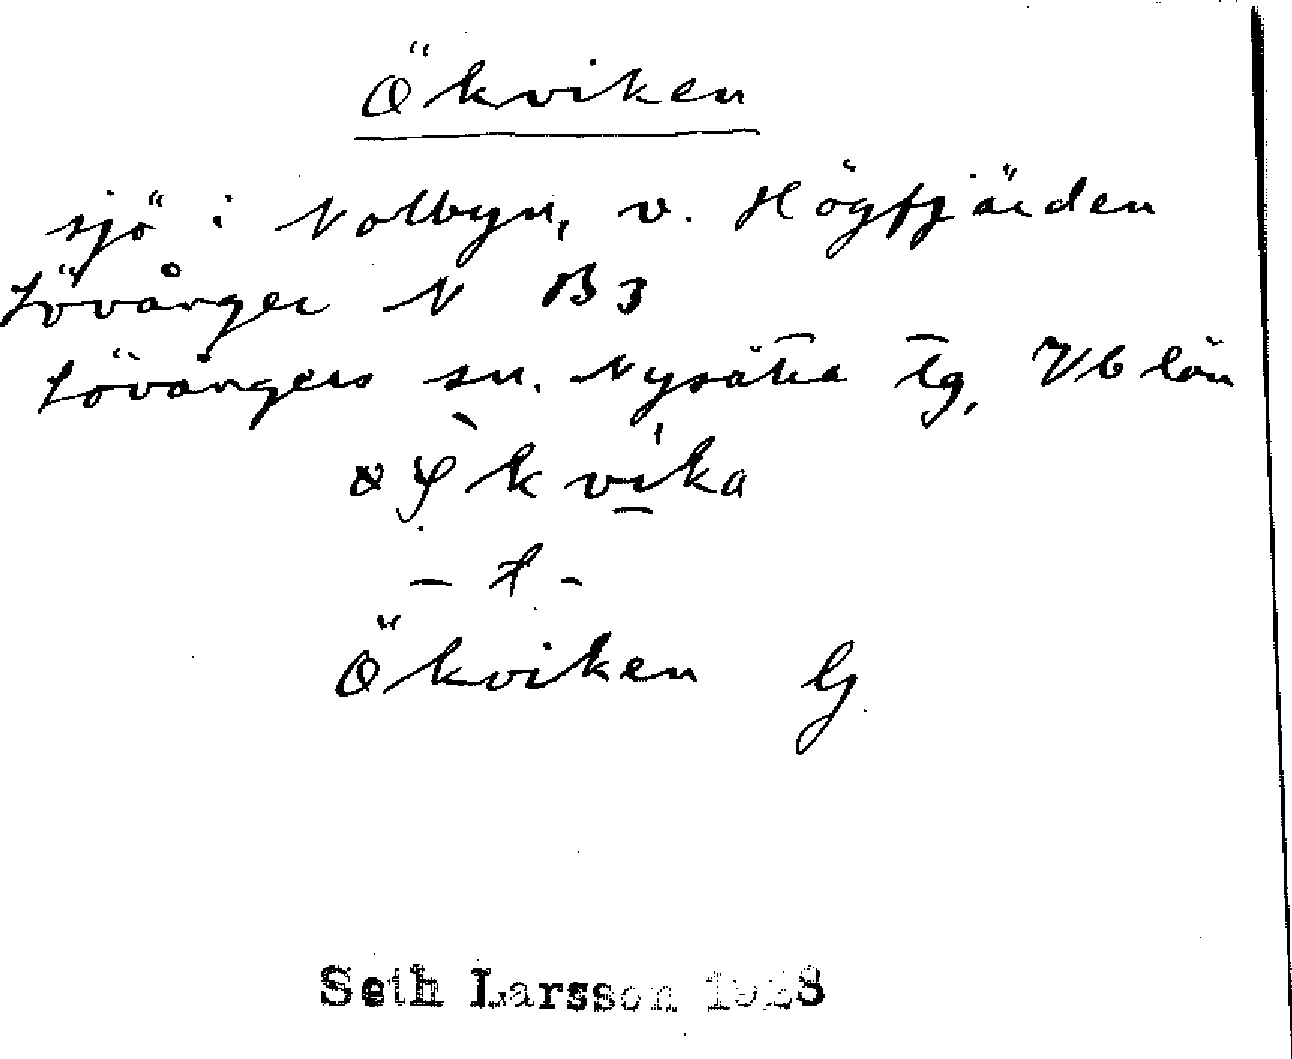 Ökviken
sjö i Nolbyn, v. Högfjärden
Lövånger N B3
Lövångers sn. Nysätra tg, Vb län
kvika
- f -
Ökviken G
Seth Larsson 1928